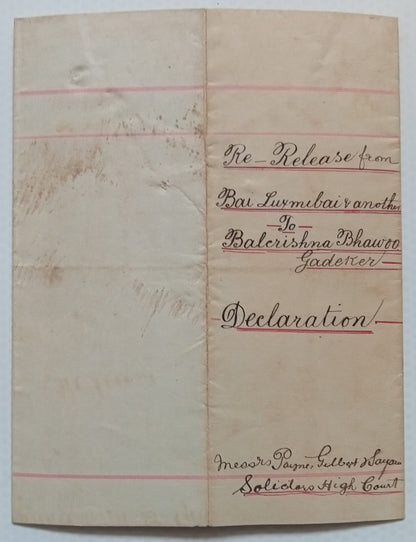 Re - Release from
Bai Luxmibai & another
- To -
Balcrishna Bhawoo
Gadeker -
- Declaration -
Messrs Payne, Gilbert & Sayani
Solicitors High Court